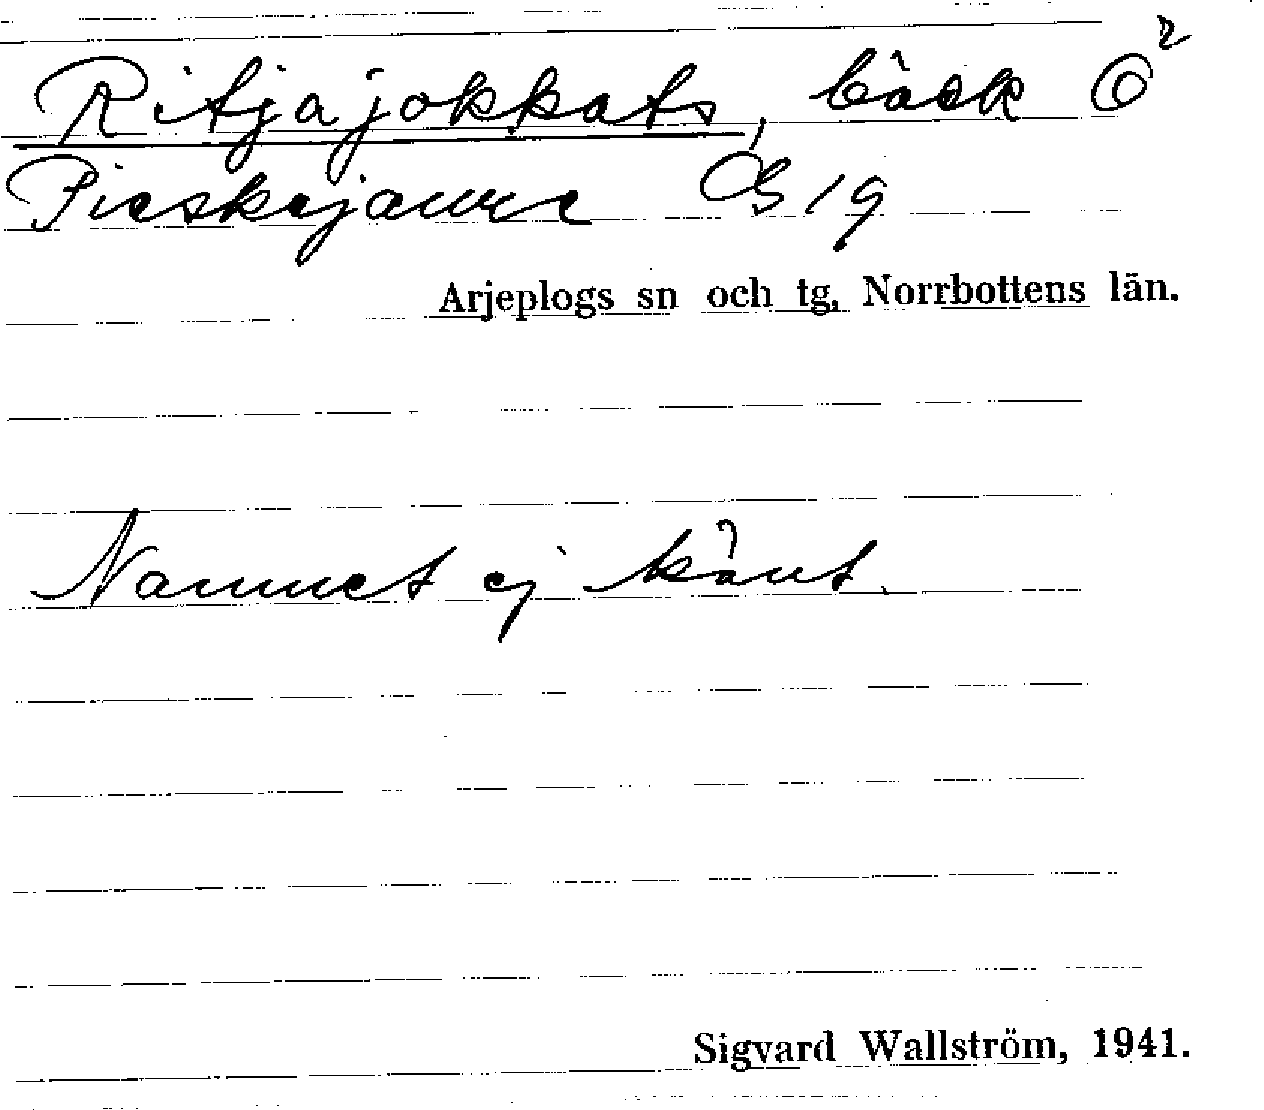 Ritjajokkats, bäck O²
Pieskejaure Ö 19
Arjeplogs sn och tg, Norrbottens län.
Namnet ej känt.
Sigvard Wallström, 1941.